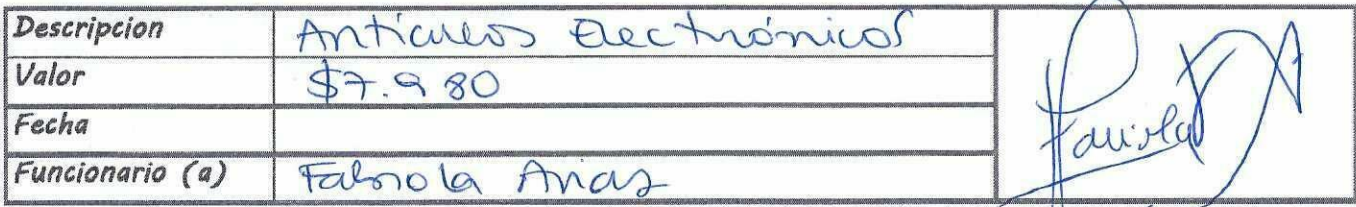 Descripcion Artículos Electrónicos
Valor $7.980
Fecha
Funcionario (a) Fabiola Arias